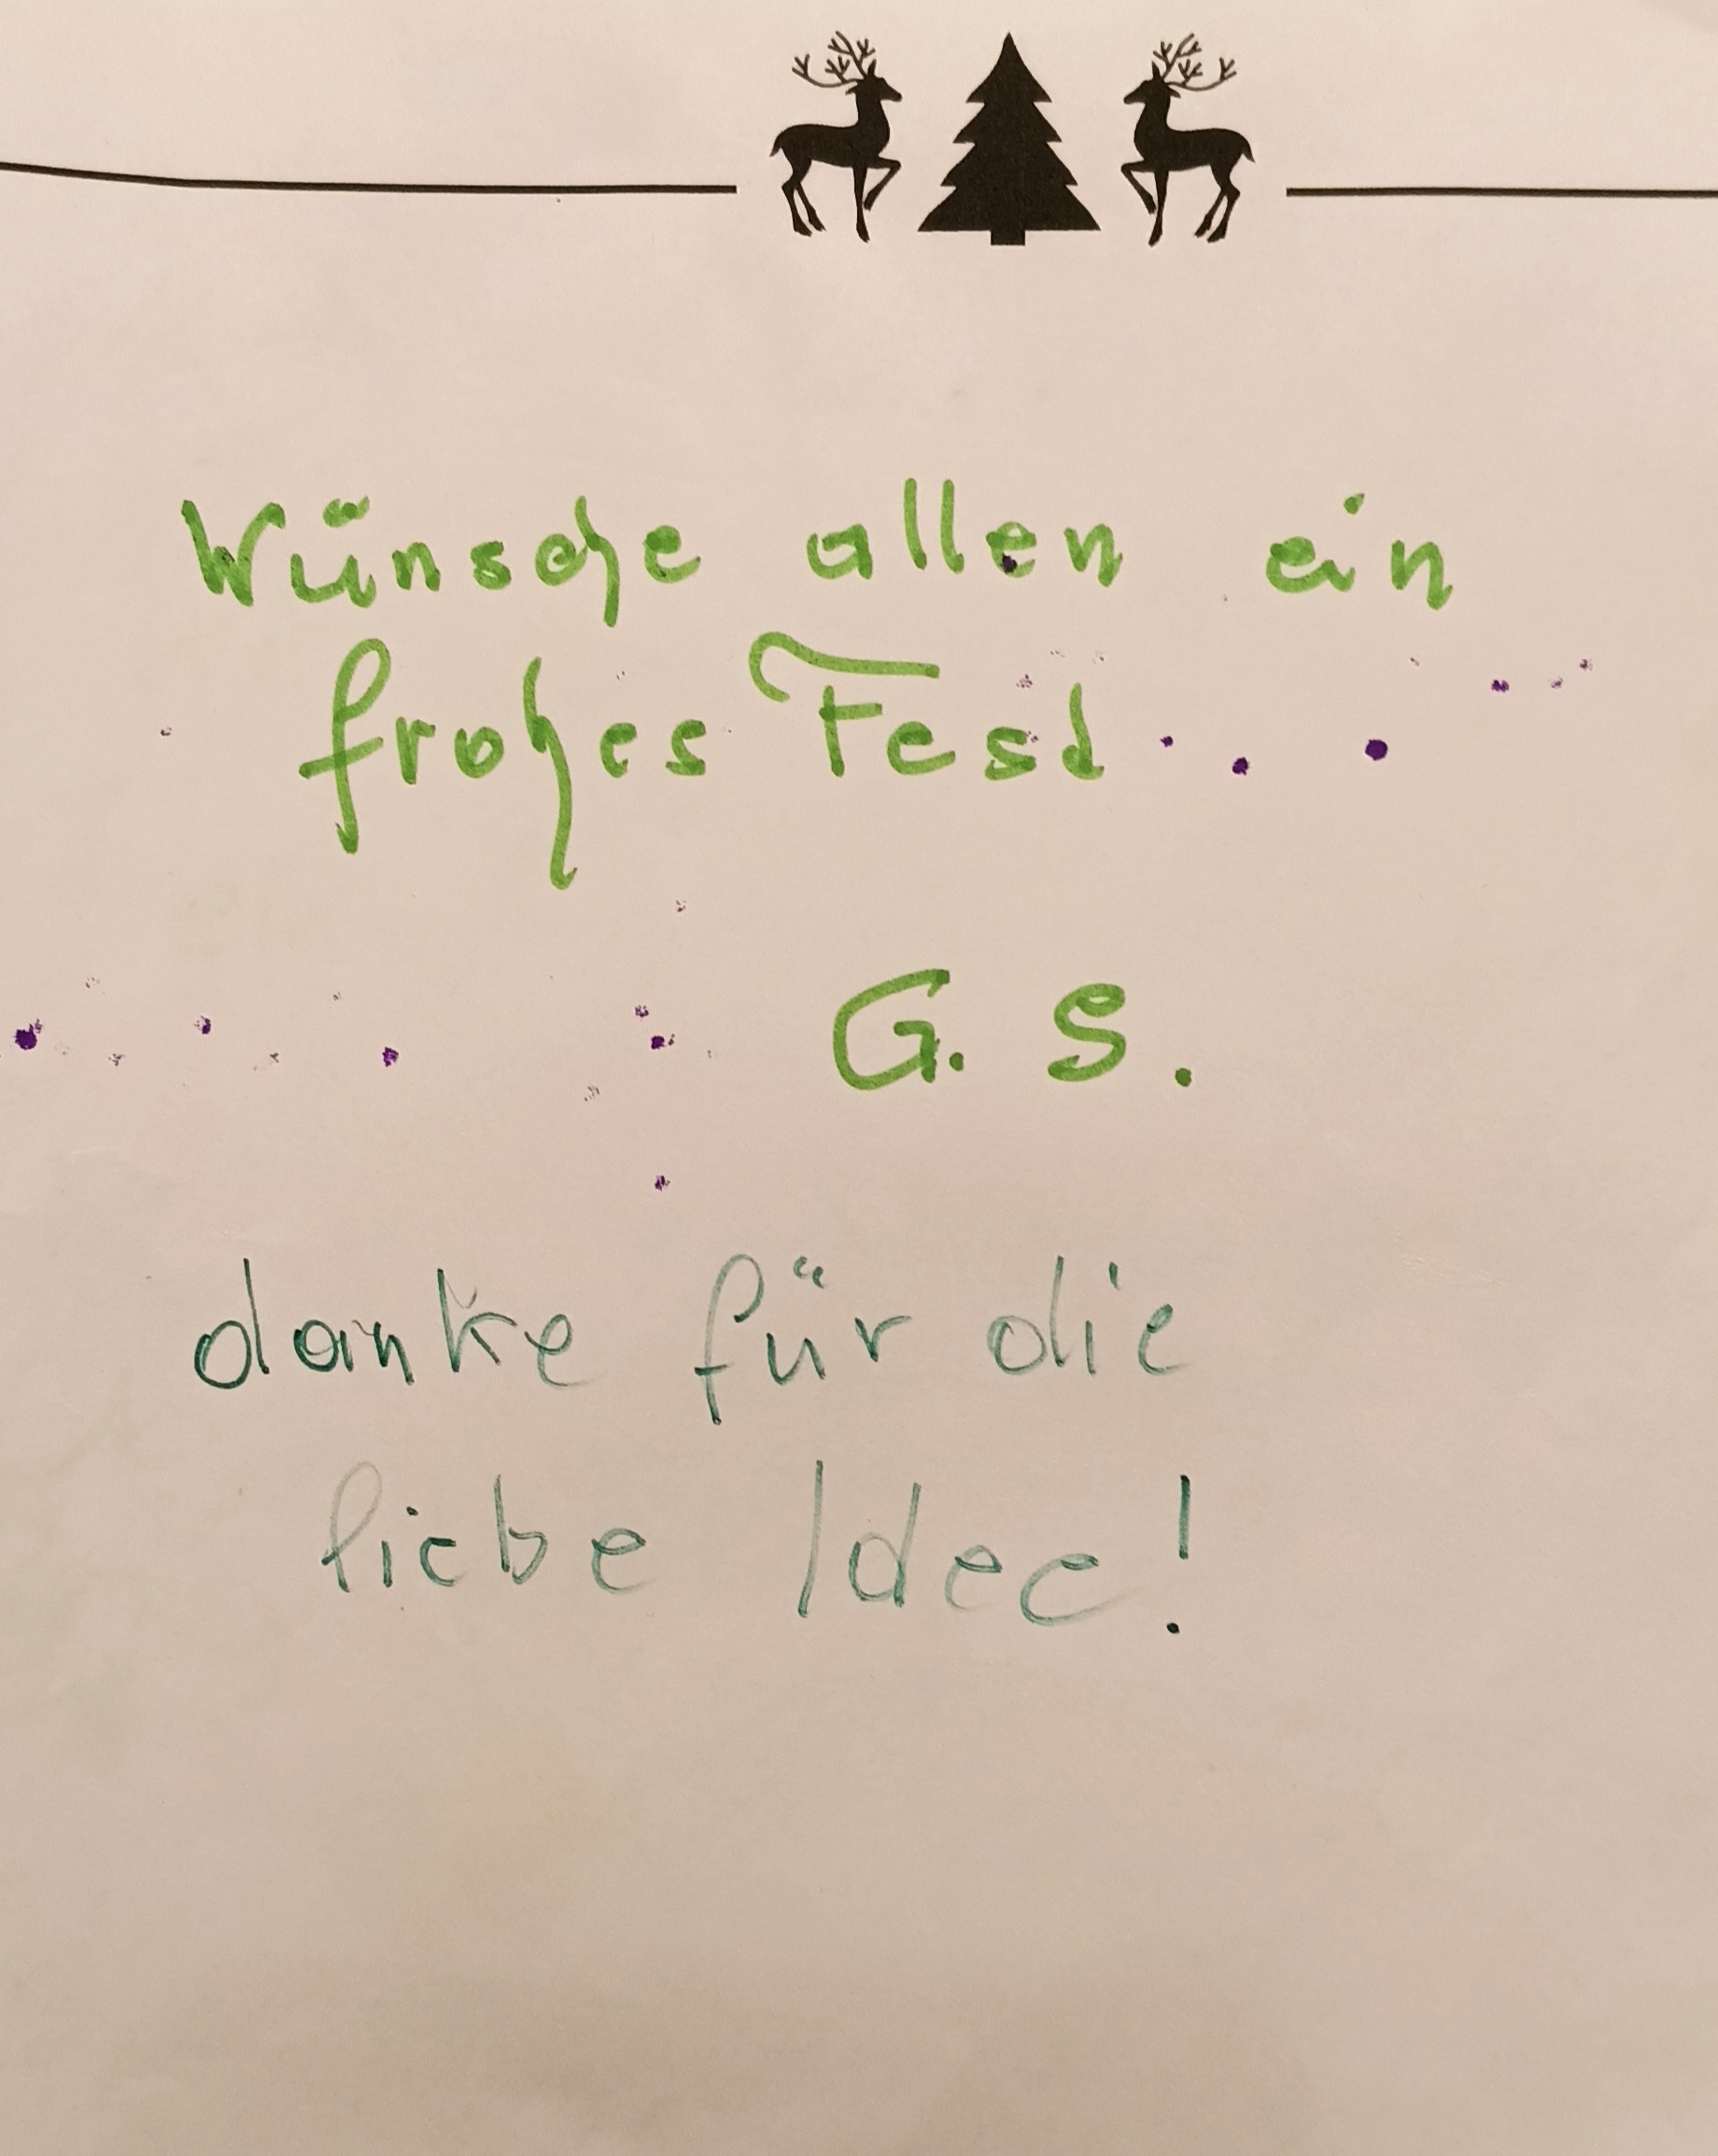 Wünsche allen ein
frohes Fest
G. S.
danke für die
liebe Idee!